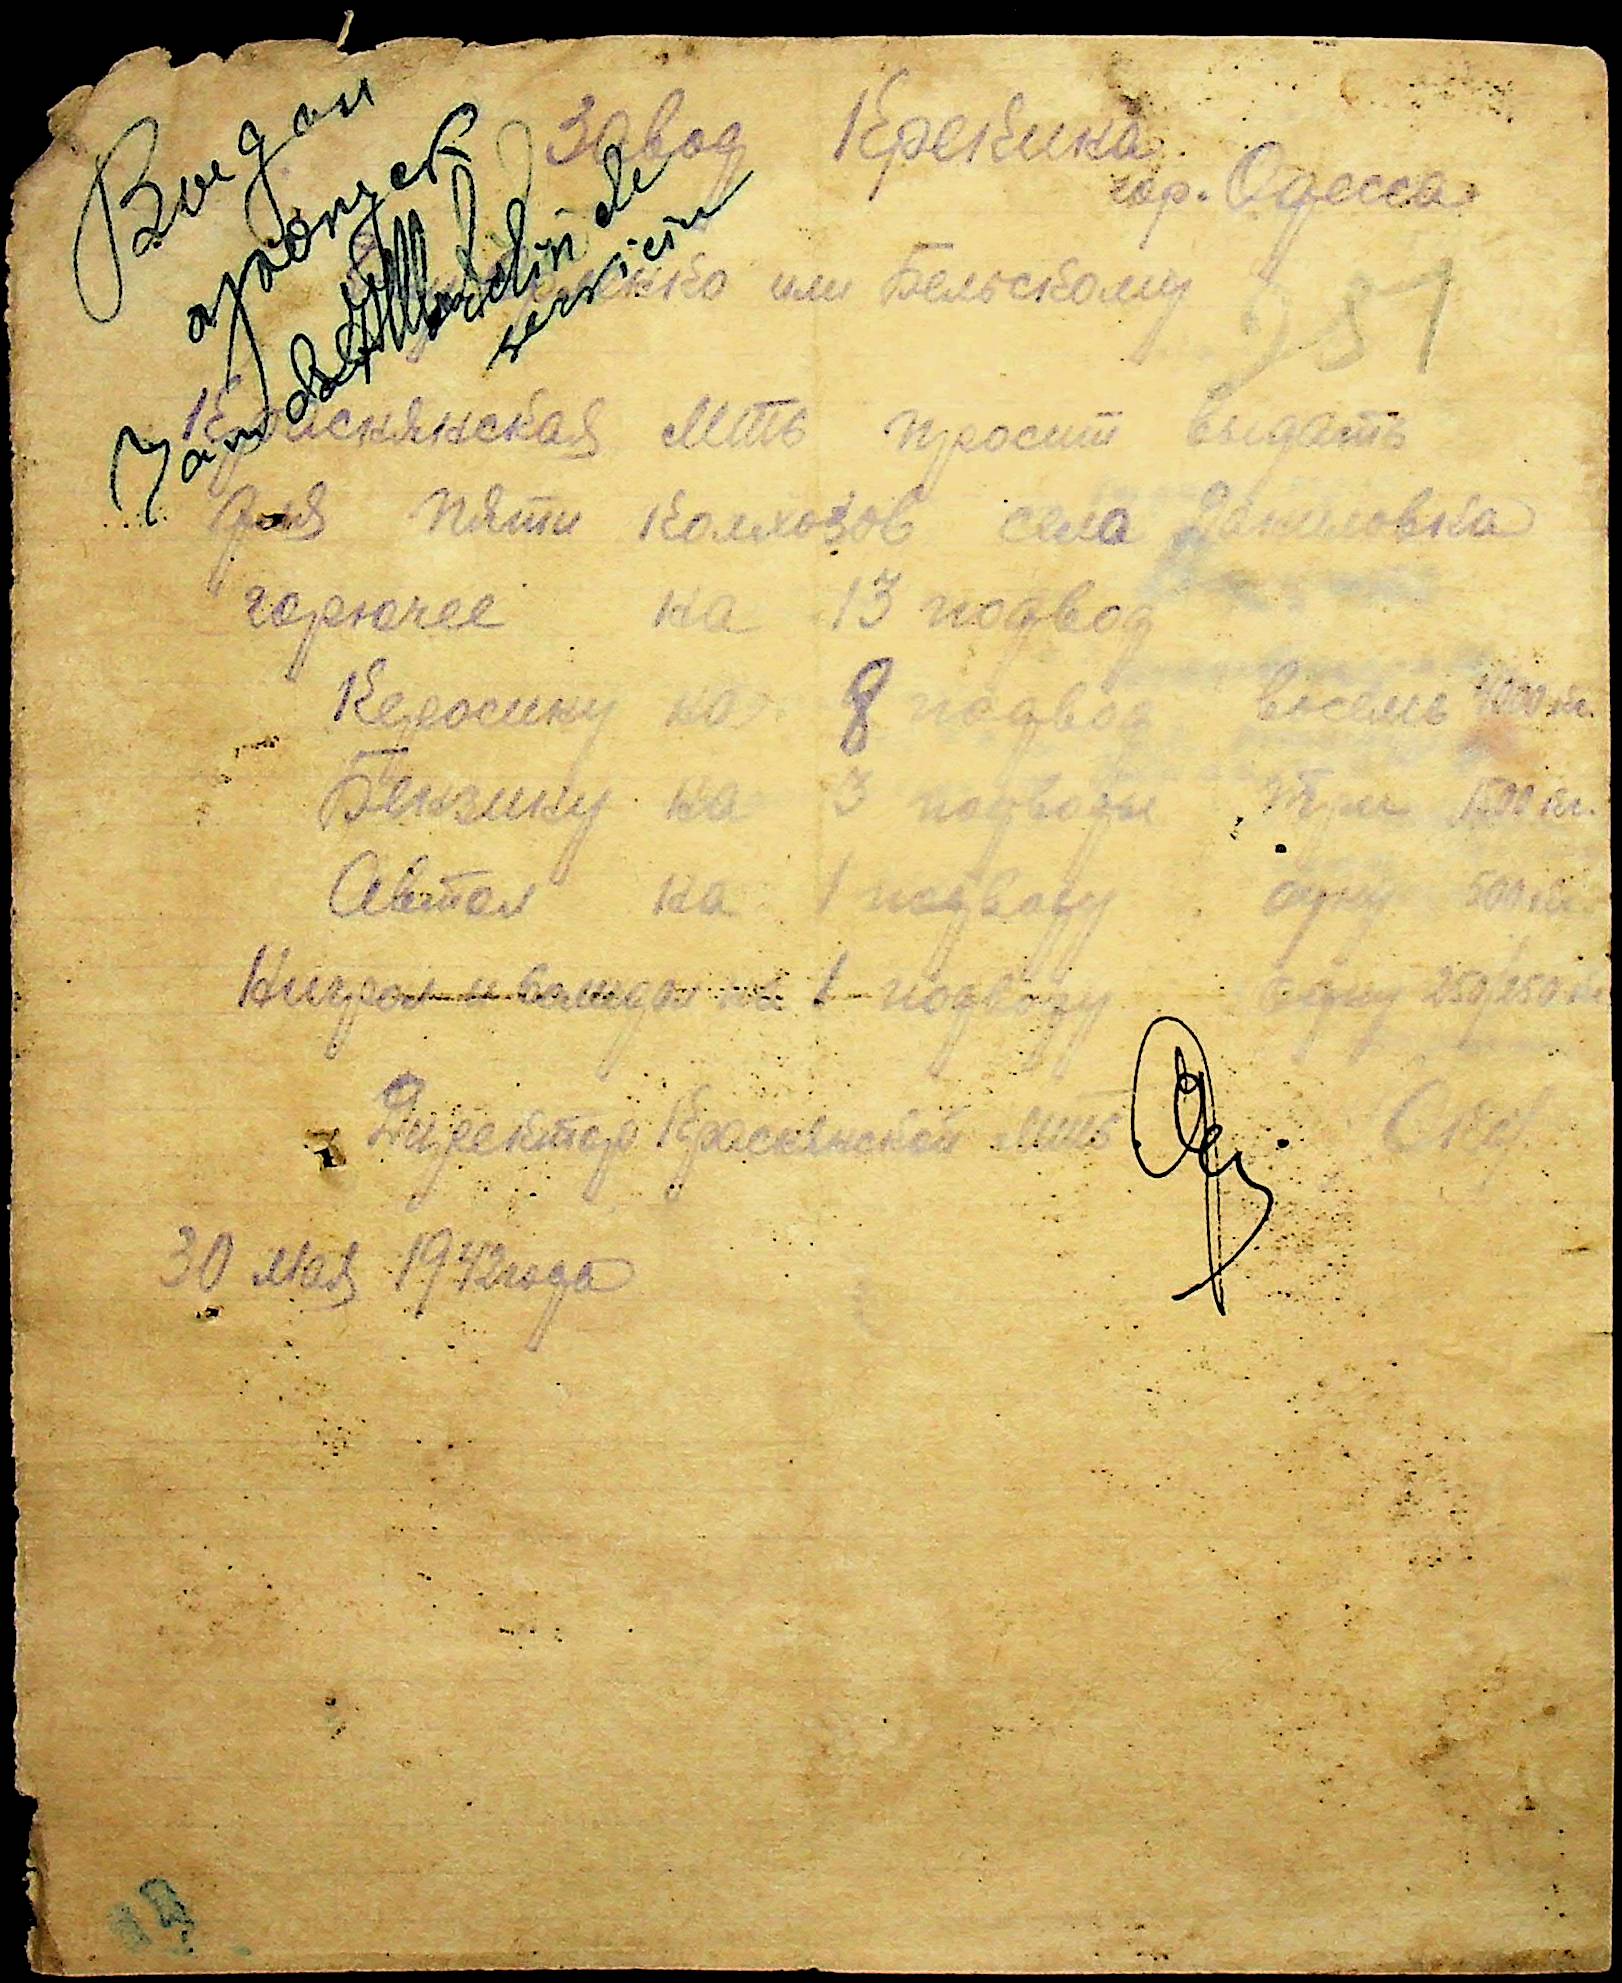 Выдан
пропуск
de serviciu
Завод Крекинга
гор. Одесса
или Бельскому
251
МТС просит выдать
для пяти колхозов села Даниловка
горючее на 13 подвод
Керосину на 8 подвод восемь 4000 кг.
Бензину на 3 подводы три 1500 кг.
Автол на 1 подводу одну 500 кг.
Нигрол и на 1 подводу одну 250/250 кг
Директор Краснянской МТС
30 мая 1942 года